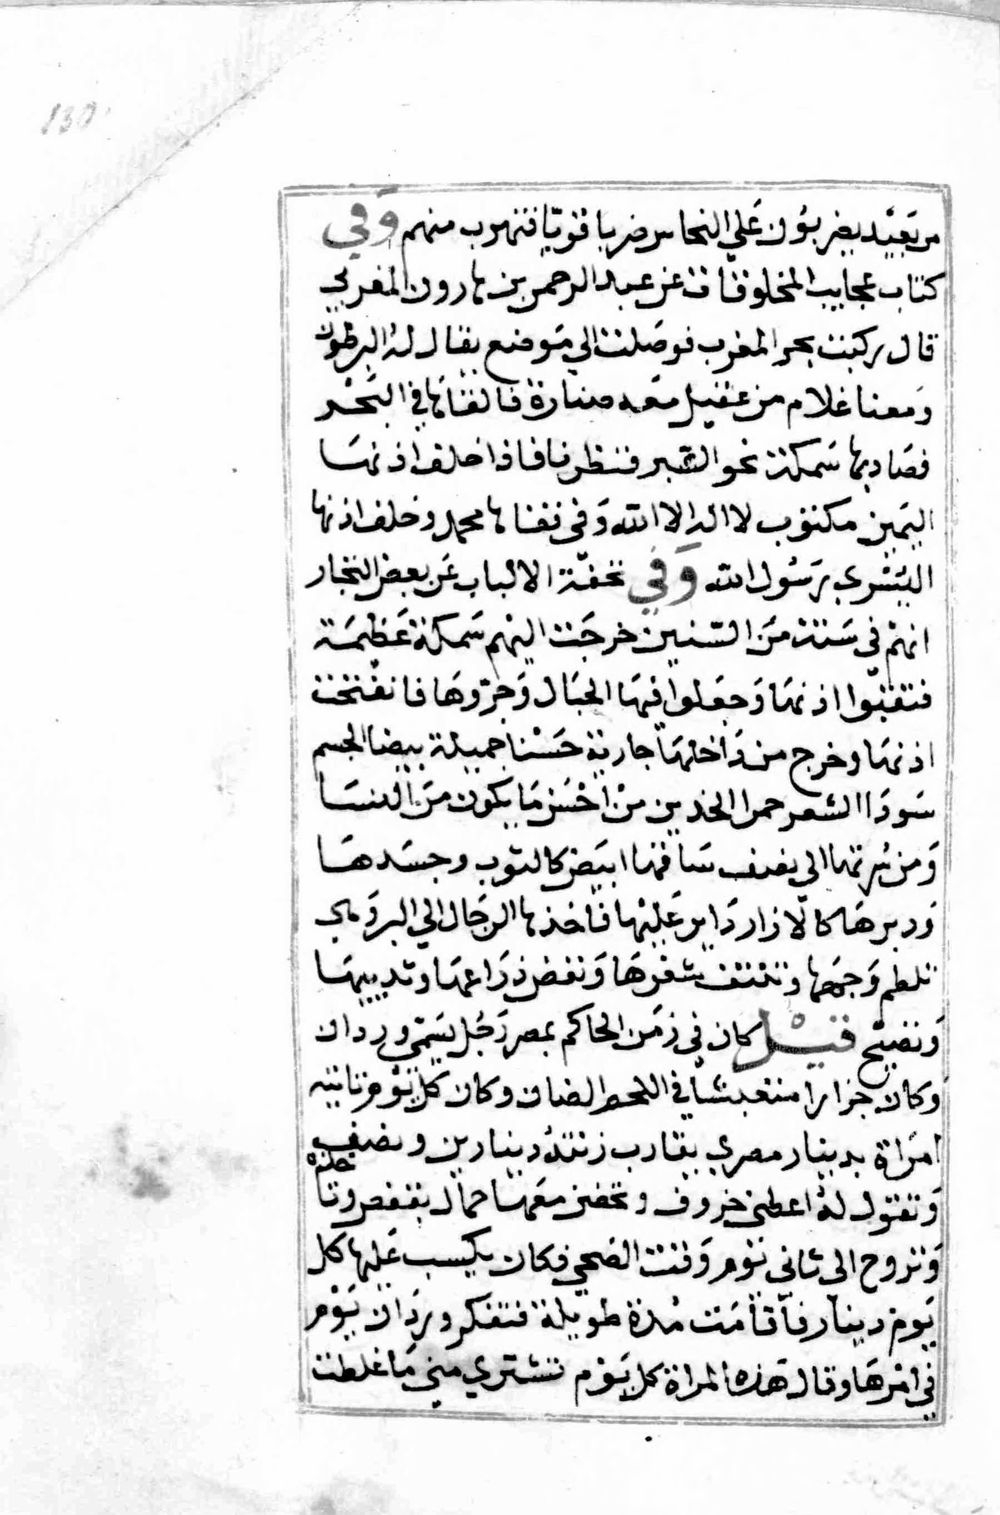 130
من بعيد يضربون علي النحاس ضربا قويا فتهرب منهم وفي
كتاب عجايب المخلوقات عن عبد الرحمن بن هارون المغربي
قال ركبت بحر المغرب فوصلت الي موضع يقال له البرطون
ومعنا غلام من عقيل معه صنارة فالقاها في البحر
فصاد بها سمكة نحو الشبر فنظرنا فاذا خلف اذنها
اليمين مكتوب لا اله الا الله وفي قفاها محمد وخلف اذنها
اليسري رسول الله وفي تحفة الالباب عن بعض التجار
انهم في سنة من السنين خرجت اليهم سمكة عظيمة
فتقبوا اذنها وجعلوا فيها الحبال وجروها فانفتحت
اذنها وخرج من داخلها جارية حسنا جميلة بيضا الجسم
سودا الشعر حمرا الخدين من احسن ما يكون من النسا
ومن سرتها الي نصف ساقها ابيض كالثوب وجسدها
ودبرها كالازار داير عليها فاخذها الرجال الي البر وهي
تلطم وجهها وتنتف شعرها وتعض ذراعها وثدييها
وتصيح قيل كان في زمن الحاكم بمصر رجل يسمي وردان
وكان جزارا متعيشا في اللحم الضان وكان كل يوم تاتيه
امراة بدينار مصري يقارب زنته دينارين ونصف
وتقول له اعطني خروف وتحضر معها حمال بقفص وتاخذه
وتروح الي ثاني يوم وقت الضحي فكان يكسب عليها كل
يوم دينار فاقامت مدة طويلة فتفكر وردان يوم
في امرها وقال هذه المراة كل يوم تشتري مني ما غلطت